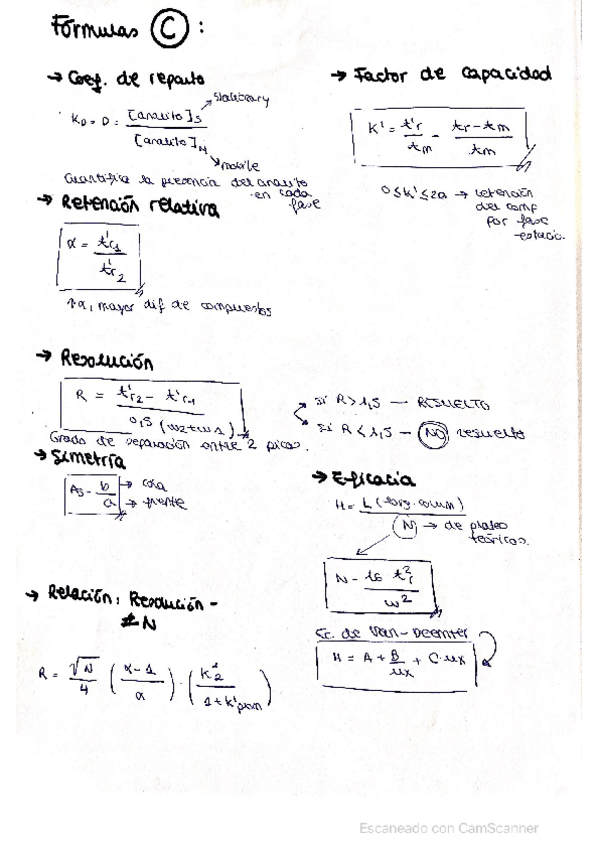 Fórmulas C :
→ Coef. de reparto
K_D = D = [analito]_S / [analito]_M
→ stationary
→ mobile
Cuantifica la presencia del analito
en cada
fase
→ Factor de capacidad
K' = t'r / tm = tr - tm / tm
0 ≤ K' ≤ 20 → retención
del comp
por fase
estacio.
→ Retención relativa
α = t'r1 / t'r2
↑α, mayor dif de compuestos
→ Resolución
R = t'r2 - t'r1 / 0,5 (w2+w1)
si R > 1,5 — RESUELTO
si R < 1,5 — NO resuelto
Grado de separación entre 2 picos.
→ Simetría
As - b/a → cola
→ frente
→ Eficacia
H = L (long. colum) / N → de platos
teóricos.
N - 16 t²r / w²
Ec. de Van-Deemter
H = A + B/ux + C·ux
→ Relación: Resolución -
≠ N
R = √N/4 (α-1/α) · (K'2/1+K'prom)
Escaneado con CamScanner